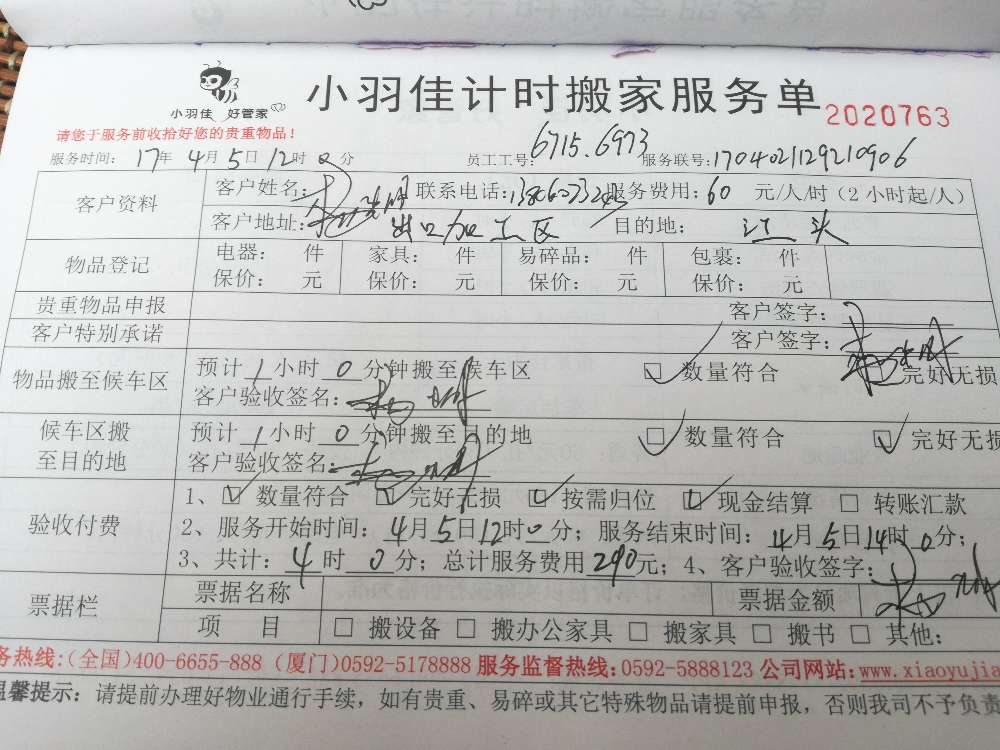 小羽佳 好管家
小羽佳计时搬家服务单
2020763
请您于服务前收拾好您的贵重物品！
服务时间： 17年 4月 5日 12时 0分 员工工号： 6715.6973 服务联号：1704021129210906
客户资料
客户姓名： 联系电话： 服务费用：60 元/人/时（2小时起/人）
客户地址： 出口加工区 目的地： 江头
物品登记
电器： 件 家具： 件 易碎品： 件 包裹： 件
保价： 元 保价： 元 保价： 元 保价： 元
贵重物品申报 客户签字：
客户特别承诺 客户签字：
物品搬至候车区
预计 1 小时 0 分钟搬至候车区 ☑ 数量符合 ☑ 完好无损
客户验收签名：
候车区搬至目的地
预计 1 小时 0 分钟搬至目的地 ☑ 数量符合 ☑ 完好无损
客户验收签名：
验收付费
1、☑ 数量符合 ☑ 完好无损 ☑ 按需归位 ☑ 现金结算 □ 转账汇款
2、服务开始时间：4月5日12时0分；服务结束时间：4月5日14时0分；
3、共计：4时 0分；总计服务费用290元；4、客户验收签字：
票据栏
票据名称 票据金额
项 目 □ 搬设备 □ 搬办公家具 □ 搬家具 □ 搬书 □ 其他：
务热线：(全国)400-6655-888 (厦门)0592-5178888 服务监督热线：0592-5888123 公司网站：www.xiaoyujia
温馨提示：请提前办理好物业通行手续，如有贵重、易碎或其它特殊物品请提前申报，否则我司不予负责